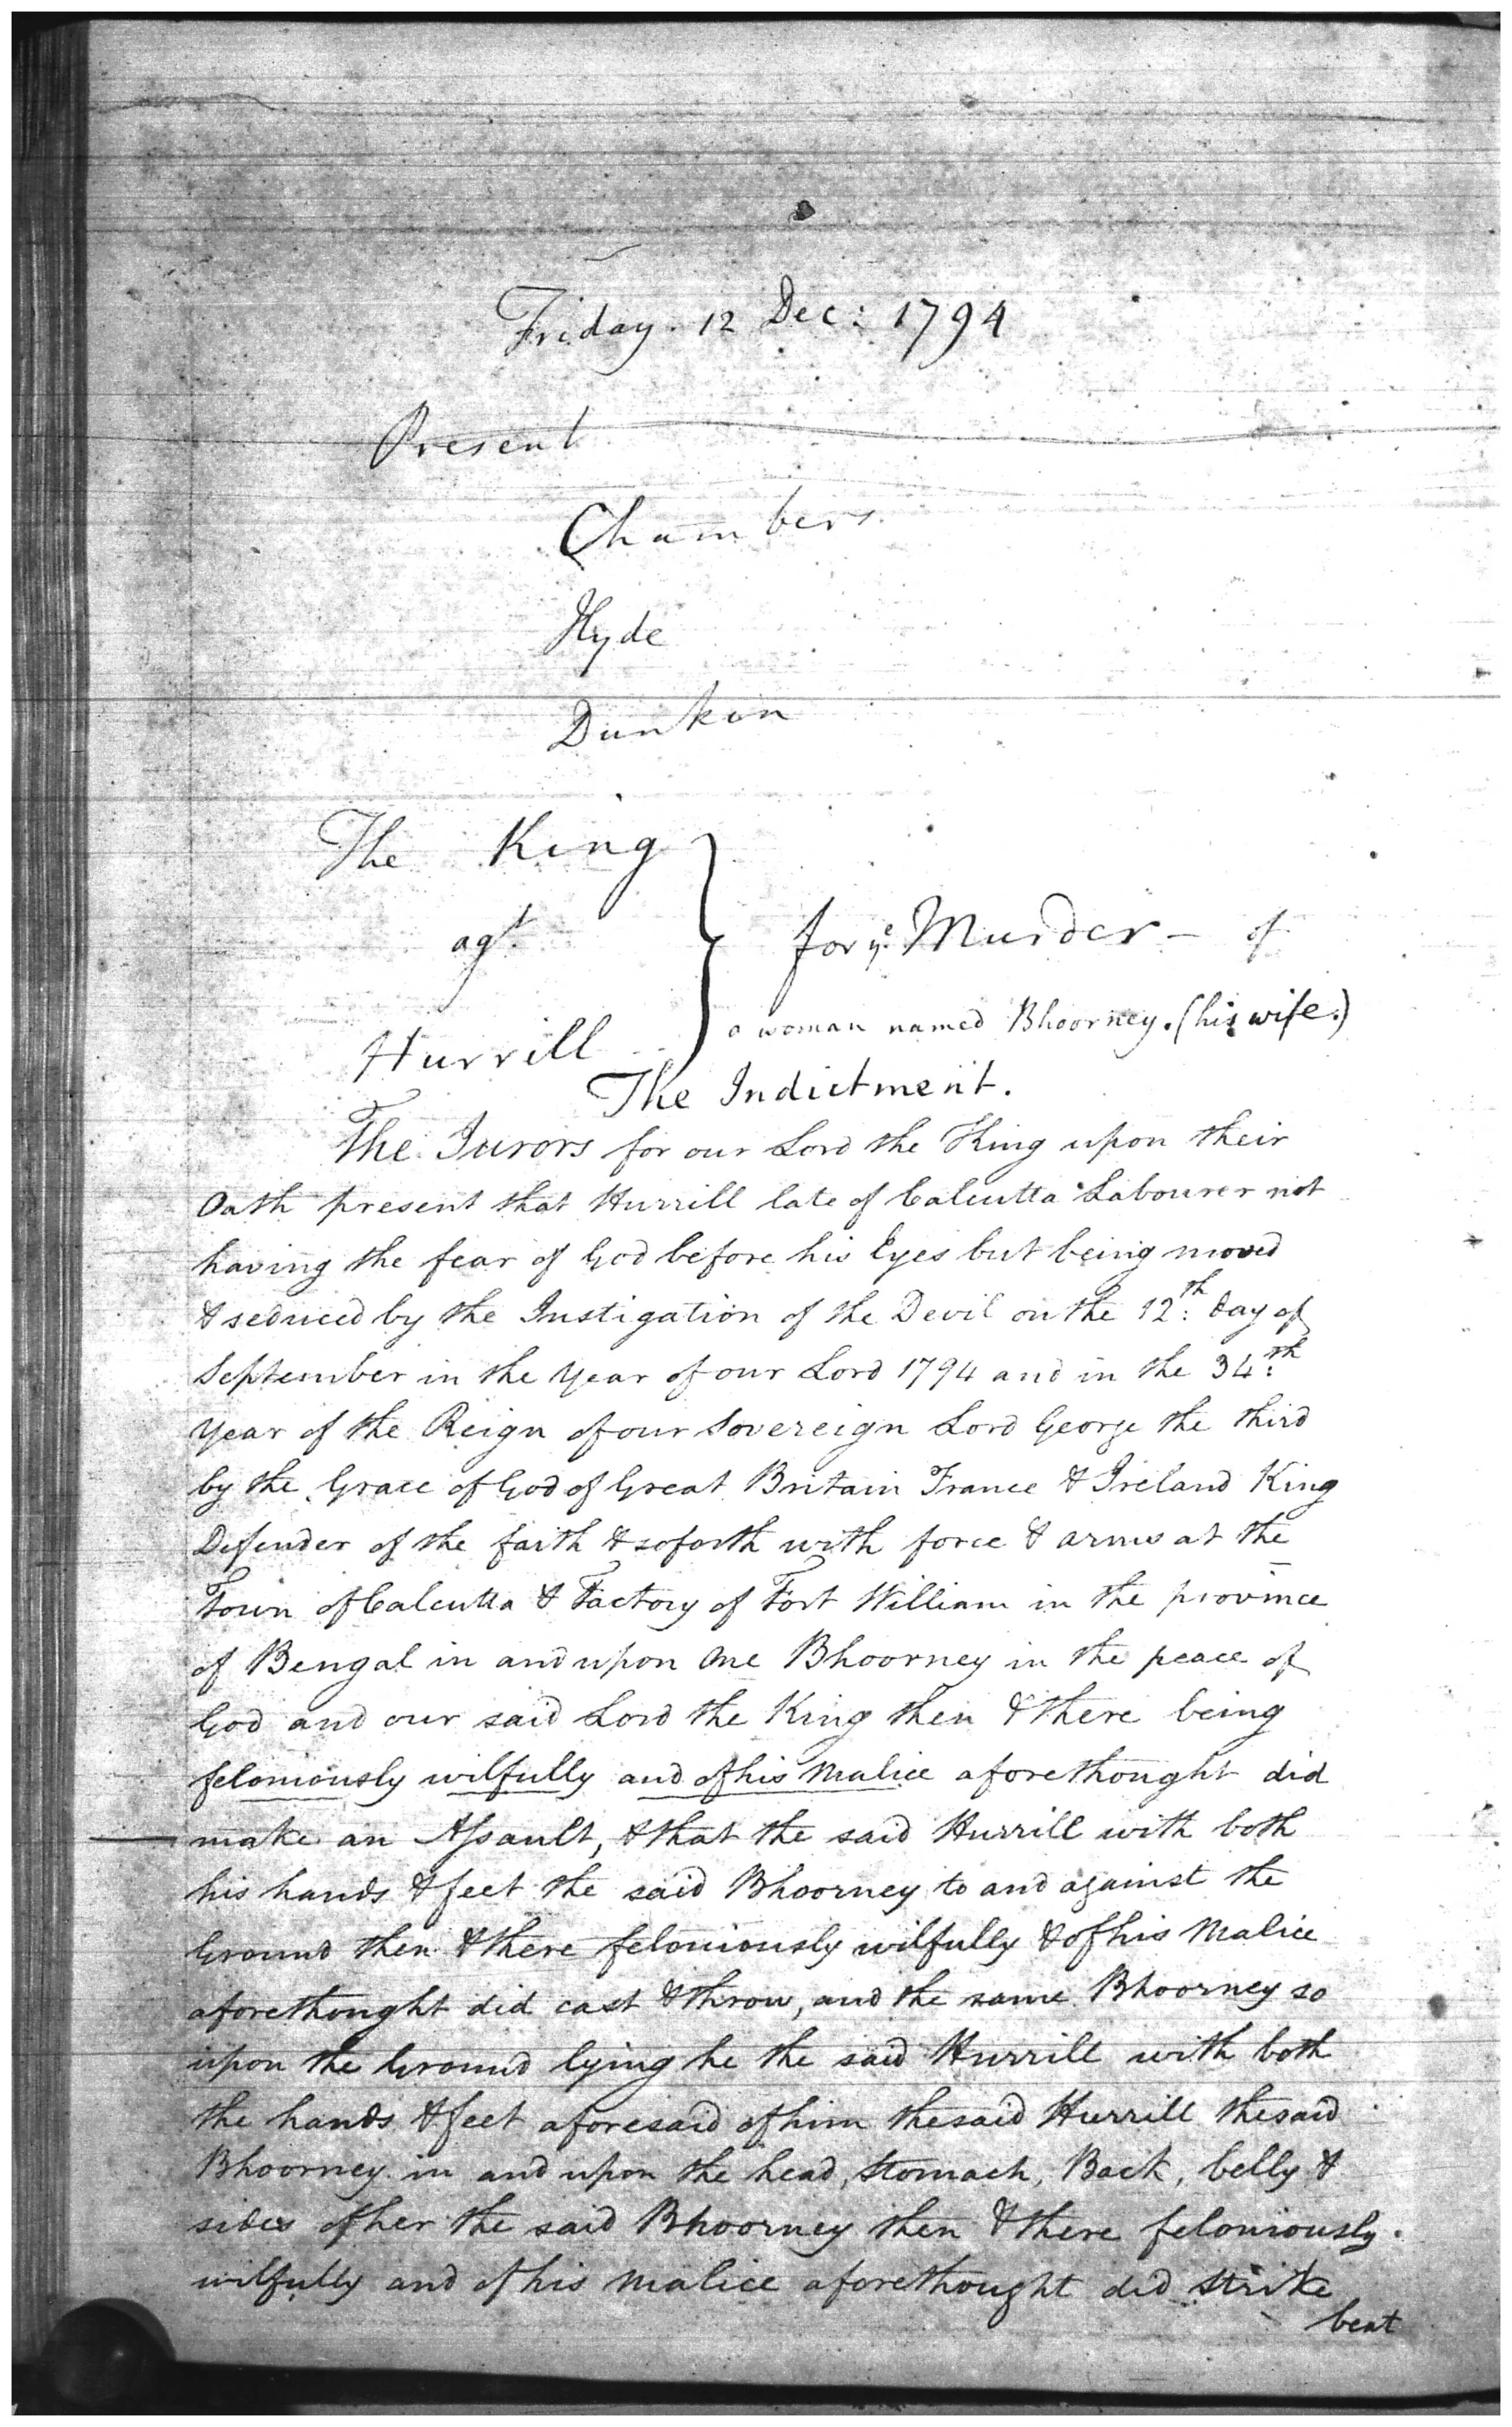 Friday. 12 Dec: 1794
Present
Chambers
Hyde
Dunkin
The King
agt.
for ye. Murder - of
a woman named Bhoorney. (his wife.)
Hurrill
The Indictment.
The Jurors for our Lord the King upon their
Oath present that Hurrill late of Calcutta Labourer not
having the fear of God before his Eyes but being moved
& seduced by the Instigation of the Devil on the 12th: day of
September in the Year of our Lord 1794 and in the 34:th
Year of the Reign of our Sovereign Lord George the third
by the Grace of God of Great Britain France & Ireland King
Defender of the faith & soforth with force & arms at the
Town of Calcutta & Factory of Fort William in the province
of Bengal in and upon one Bhoorney in the peace of
God and our said Lord the King then & there being
feloniously wilfully and of his Malice aforethought did
make an Assault, & that the said Hurrill with both
his hands & feet the said Bhoorney to and against the
Ground then & there feloniously wilfully & of his Malice
aforethought did cast & throw, and the same Bhoorney so
upon the Ground lying he the said Hurrill with both
the hands & feet aforesaid of him the said Hurrill the said
Bhoorney in and upon the head, Stomach, Back, belly &
sides of her the said Bhoorney then & there feloniously.
wilfully and of his Malice aforethought did Strike
beat